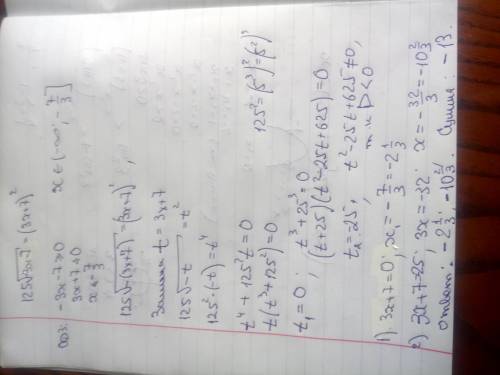 125√-3x-7 = (3x+7)²
ОДЗ: -3x-7≥0 x∈(-∞; -7/3]
3x+7≤0
x≤-7/3
125√-(3x+7) = (3x+7)²,
Замена t = 3x+7
125√-t = t²
125²·(-t) = t⁴
t⁴ + 125²t = 0
t(t³+125²) = 0 125² = (5³)² = (5²)³
t₁ = 0; t³ + 25³ = 0
(t+25)(t²-25t+625) = 0
t₂ = -25, t²-25t+625≠0,
т.к D<0
1) 3x+7=0; x₁ = -7/3 = -2 1/3
2) 3x+7=-25; 3x=-32; x = -32/3 = -10 2/3
Ответ: -2 1/3; -10 2/3. Сумма: -13.